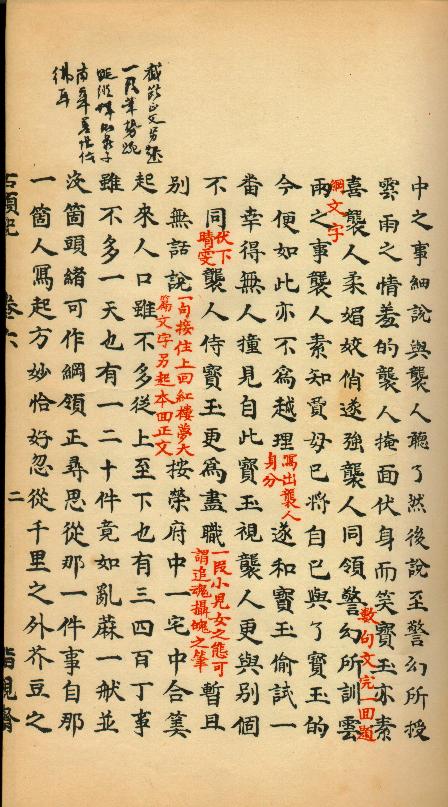 中之事細說與襲人聽了然後說至警幻所授
雲雨之情羞的襲人掩面伏身而笑寶玉亦素
喜襲人柔媚姣俏遂強襲人同領警幻所訓雲
數句文完一回題
綱文字
雨之事襲人素知賈母已將自己與了寶玉的
今便如此亦不為越理寫出襲人身分遂和寶玉偷試一
番幸得無人撞見自此寶玉視襲人更與別個
不同伏下晴雯襲人侍寶玉更為盡職一段小兒女之態可謂追魂攝魄之筆暫且
別無話說一句接住上回紅樓夢大篇文字另起本回正文按榮府中一宅中合筭
起來人口雖不多從上至下也有三四百丁事
雖不多一天也有一二十件竟如亂蔴般並
没箇頭緒可作綱領正尋思從那一件事自那
一箇人寫起方妙恰好忽從千里之外芥豆之
截断正文另起
一段筆勢蜿
蜒縱橫則庄子
南華差堪彷
彿耳
石頭記 卷六 二 脂硯齋